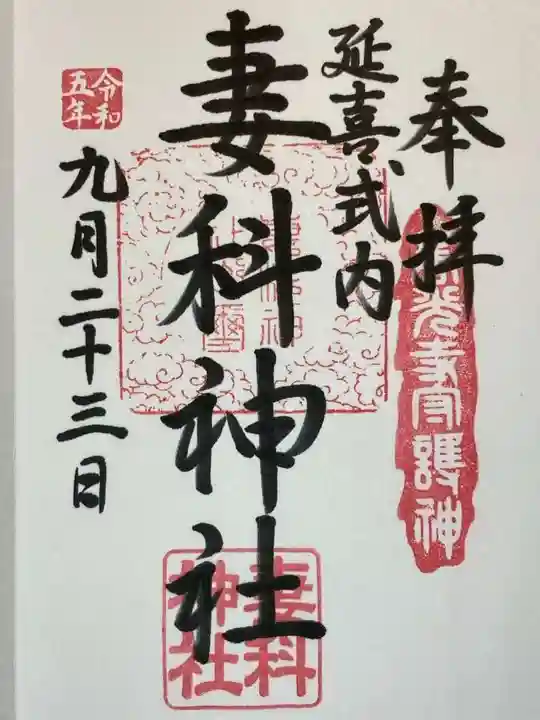 奉拝
善光寺守護神
延喜式内
妻科神社
妻科
神社
令和
五年
九月二十三日